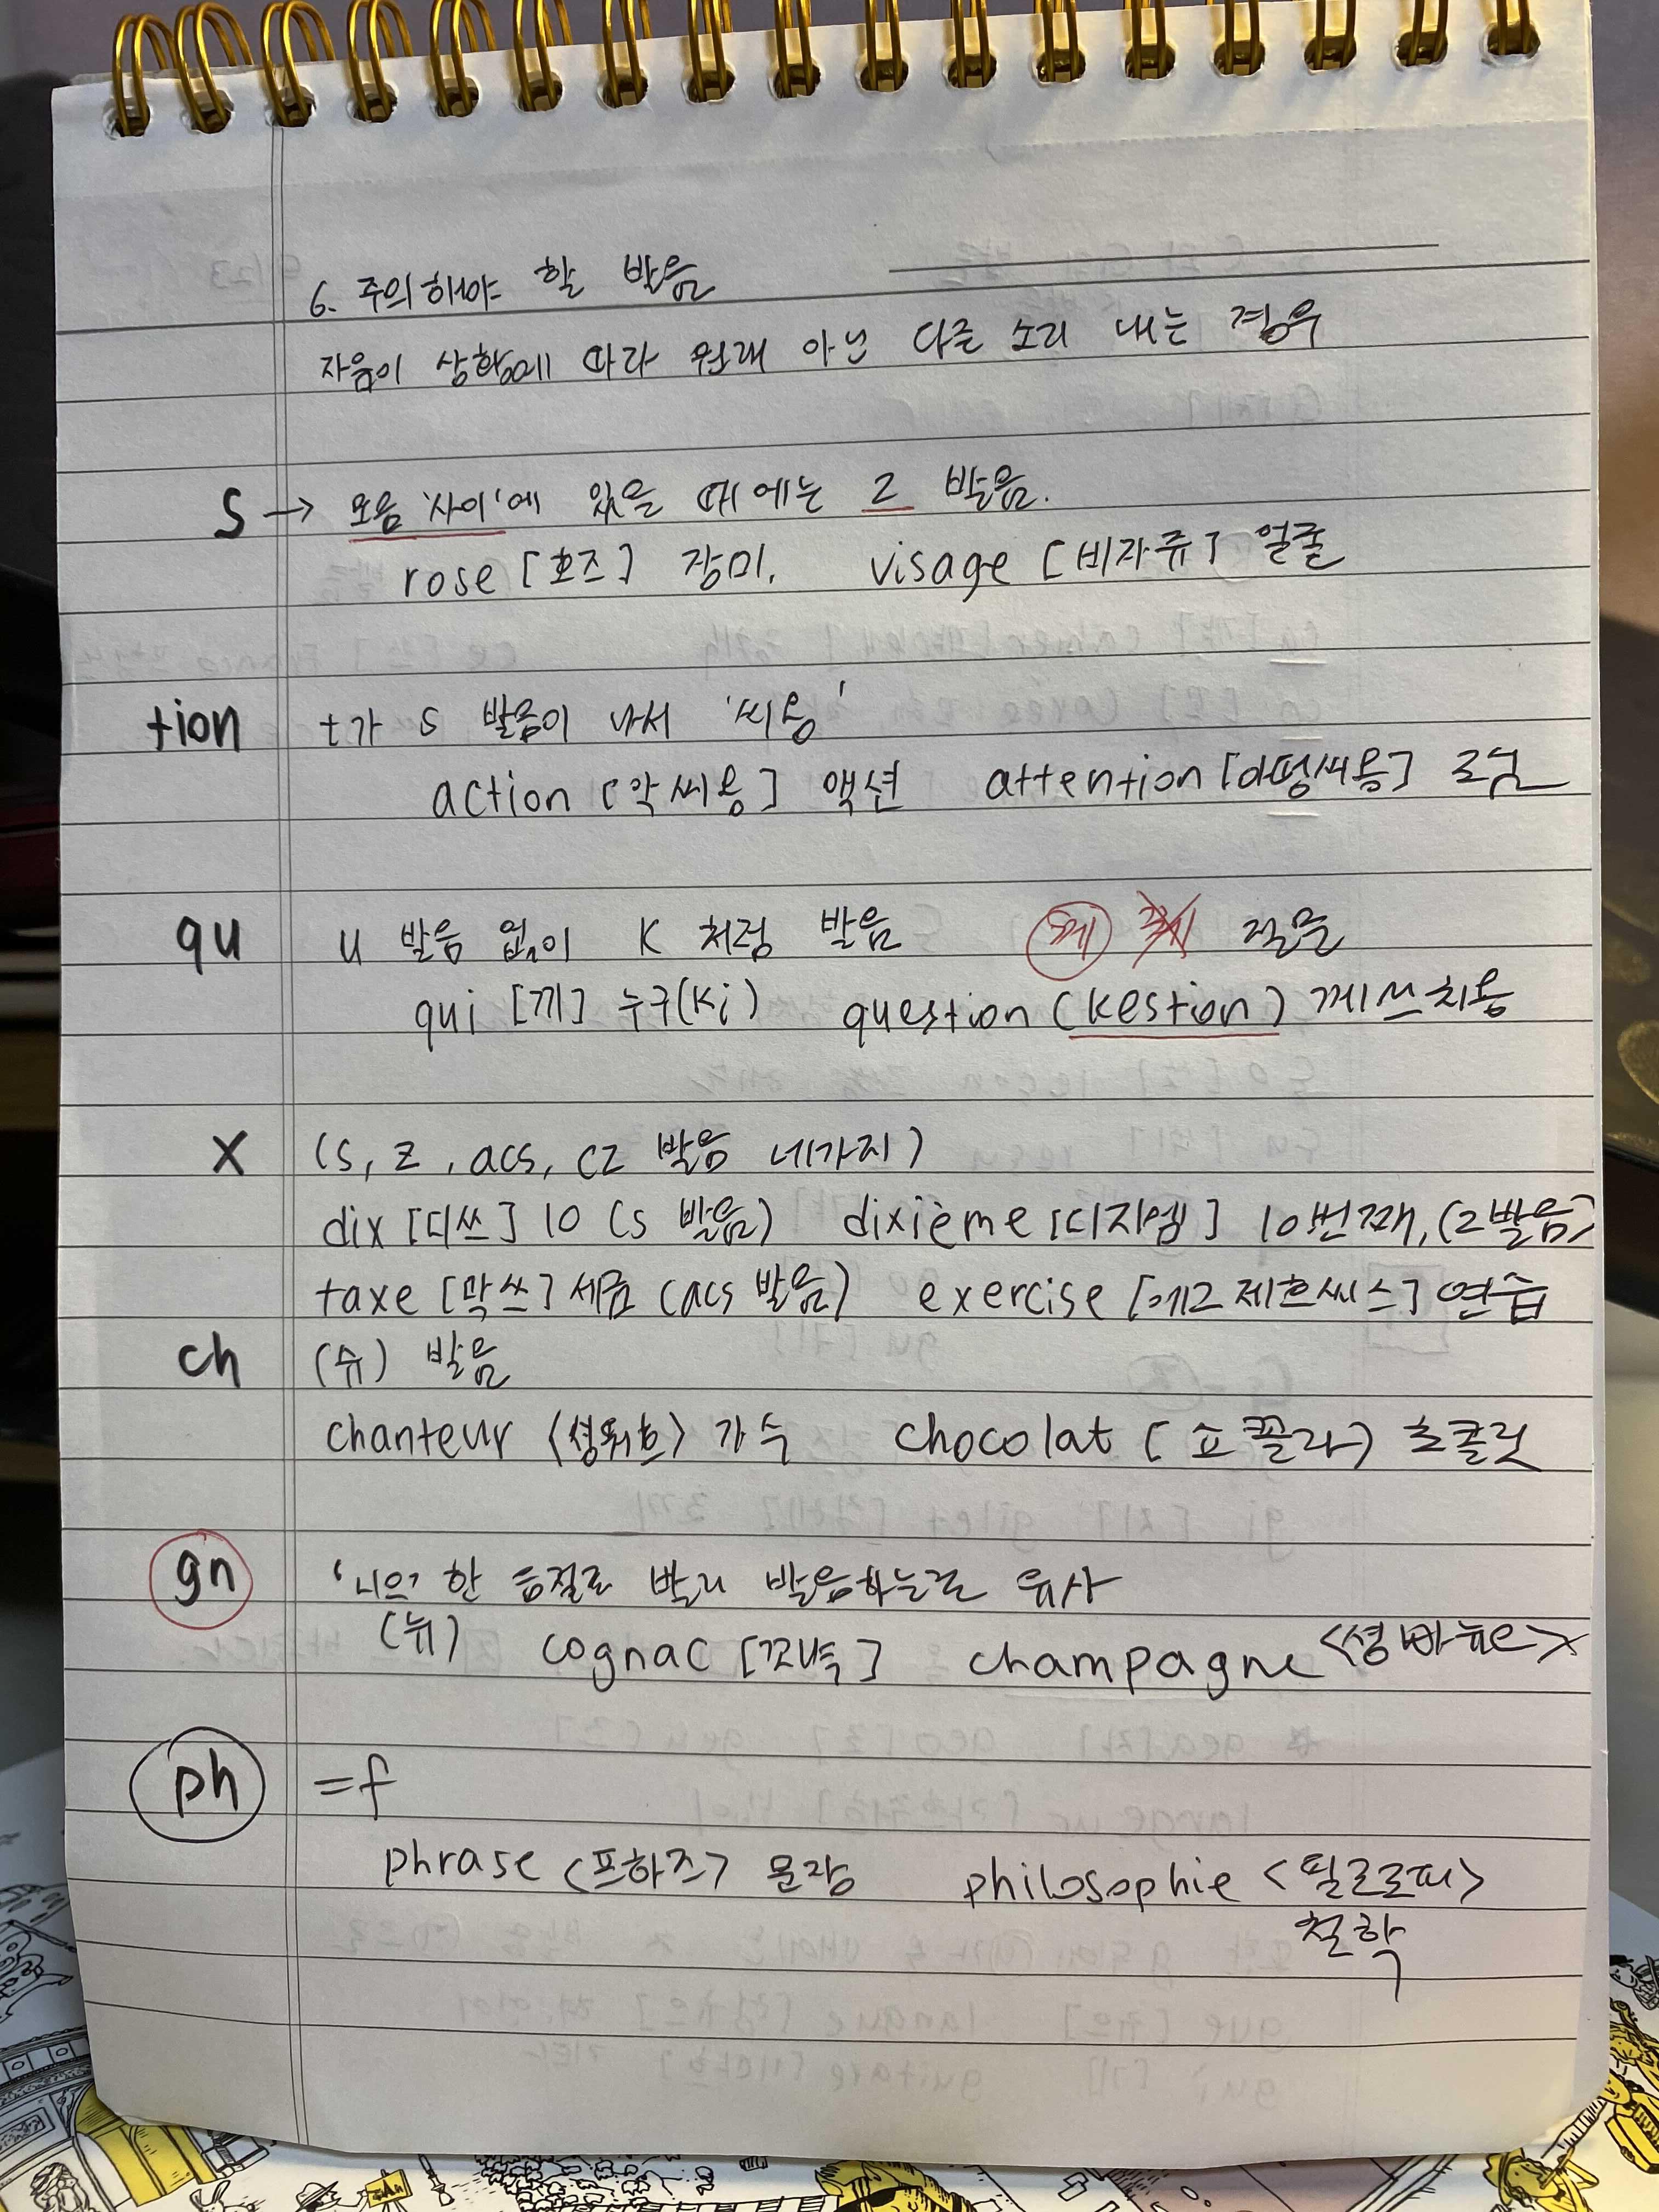 6. 주의해야 할 발음
자음이 상황에 따라 원래 아닌 다른 소리 내는 경우
S → 모음 '사이'에 있을 때에는 z 발음.
rose [호즈] 장미. visage [비자쥬] 얼굴
tion t가 s 발음이 나서 '씨옹'
action [악씨옹] 액션 attention [아떵씨옹]
qu u 발음 없이 K 처럼 발음 질문
qui [끼] 누구(Ki) question (kestion) 께쓰치옹
X (s, z, acs, cz 발음 네가지)
dix [디쓰] 10 (s 발음) dixième [디지엠] 10번째, (z발음)
taxe [딱쓰] 세금 (acs 발음) exercise [에그제흐씨스] 연습
ch (슈) 발음
chanteur <셩뙈흐> 가수 chocolat (쇼꼴라) 초콜릿
gn '니으' 한 음절로 빨리 발음하는걸로 유사
(뉴) cognac [꼬냑] champagne <셩빠뉴e>
ph = f
phrase <프하즈> 문장 philosophie <필로로피>
철학